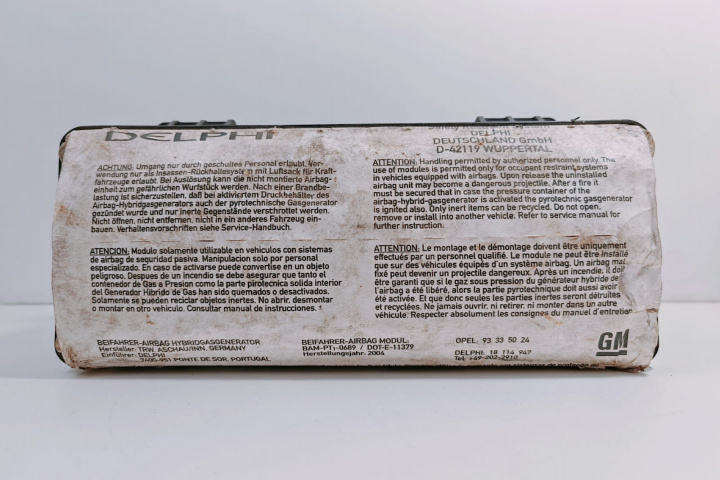 DELPHI
DELPHI
DEUTSCHLAND GmbH
D-42119 WUPPERTAL
ACHTUNG: Umgang nur durch geschultes Personal erlaubt. Ver-
wendung nur als Insassen-Rückhaltesyst m mit Luftsack für Kraft-
fahrzeuge erlaubt. Bei Auslösung kann die nicht montierte Airbag-
einheit zum gefährlichen Wurfstück werden. Nach einer Brandbe-
lastung ist sicherzustellen, daß bei aktiviertem Druckbehälter des
Airbag-Hybridgasgenerators auch der pyrotechnische Gasgenerator
gezündet wurde und nur inerte Gegenstände verschrottet werden.
Nicht öffnen, nicht entfernen, nicht in ein anderes Fahrzeug ein-
bauen. Verhaltensvorschriften siehe Service-Handbuch.
ATTENTION: Handling permitted by authorized personnel only. The
use of modules is permitted only for occupant restraint systems
in vehicles equipped with airbags. Upon release the uninstalled
airbag unit may become a dangerous projectile. After a fire it
must be secured that in case the pressure container of the
airbag-hybrid-gasgenerator is activated the pyrotechnic gasgenerator
is ignited also. Only inert items can be recycled. Do not open,
remove or install into another vehicle. Refer to service manual for
further instruction.
ATENCION: Modulo solamente utilizable en vehiculos con sistemas
de airbag de seguridad pasiva. Manipulacion solo por personal
especializado. En caso de activarse puede convertise en un objeto
peligroso. Despues de un incendio se debe asegurar que tanto el
contenedor de Gas a Presion como la parte pirotecnica solida interior
del Generador Hibrido de Gas han sido quemados o desactivados.
Solamente se pueden reciclar objetos inertes. No abrir, desmontar
o montar en otro vehiculo. Consultar manual de instrucciones.
ATTENTION: Le montage et le démontage doivent être uniquement
effectués par un personnel qualifié. Le module ne peut être installé
que sur des véhicules équipés d'un système airbag. Un airbag mal
fixé peut devenir un projectile dangereux. Après un incendie, il doit
être garanti que si le gaz sous pression du générateur hybride de
l'airbag a été libéré, alors la partie pyrotechnique doit aussi avoir
été activée. Et que donc seules les parties inertes seront détruites
et recyclées. Ne jamais ouvrir, ni retirer, ni monter dans un autre
véhicule. Respecter absolument les consignes du manuel d'entretien
BEIFAHRER-AIRBAG HYBRIDGASGENERATOR
Hersteller: TRW, ASCHAU/INN, GERMANY
Einführer: DELPHI
7400-951 PONTE DE SOR, PORTUGAL
BEIFAHRER-AIRBAG MODUL:
BAM-PT1-0689 / DOT-E-11379
Herstellungsjahr: 2004
OPEL: 93 33 50 24
DELPHI: 18 114 947
Tel: +49-202-2910
GM